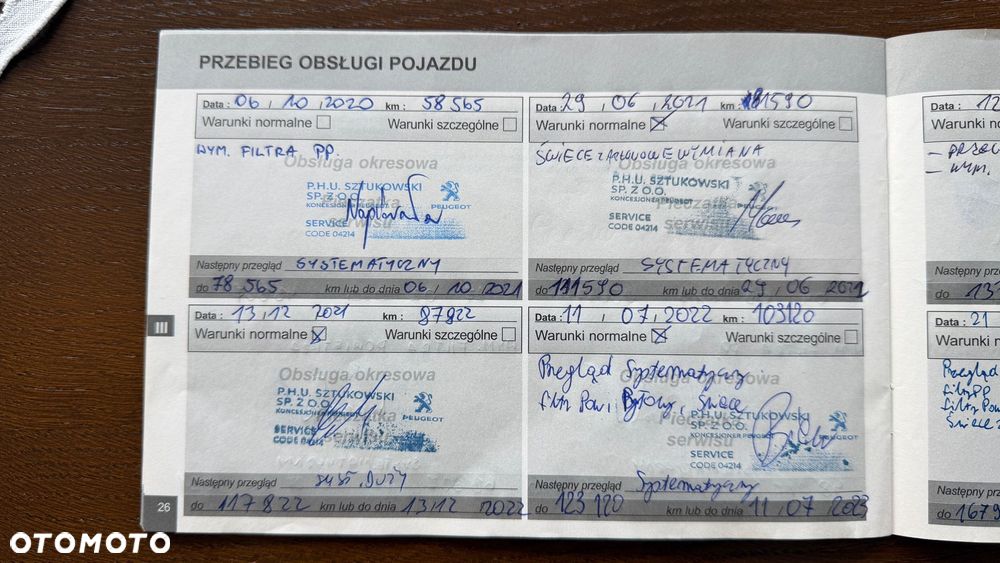 PRZEBIEG OBSŁUGI POJAZDU
Data : 06 / 10 / 2020 km : 58 565
Warunki normalne Warunki szczególne
WYM. FILTRA PP.
Obsługa okresowa
P.H.U. SZTUKOWSKI
SP. Z O.O.
KONCESJONER PEUGEOT
PEUGEOT
Pieczątka
serwisu
SERVICE
CODE 04214
Następny przegląd SYSTEMATYCZNY
do 78 565 km lub do dnia 06 / 10 / 2021
Data : 29 / 06 / 2021 km :
Warunki normalne Warunki szczególne
ŚWIECE ZAPŁONOWE WYMIANA
Obsługa okresowa
P.H.U. SZTUKOWSKI
SP. Z O.O.
KONCESJONER PEUGEOT
Pieczątka
serwisu
SERVICE
CODE 04214
Następny przegląd SYSTEMATYCZNY
do km lub do dnia 29 / 06
Data : 13 / 12 2021 km : 87822
Warunki normalne Warunki szczególne
Obsługa okresowa
P.H.U. SZTUKOWSKI
SP. Z O.O.
KONCESJONER PEUGEOT
PEUGEOT
Pieczątka
serwisu
SERVICE
CODE 04214
Następny przegląd SYST. DUŻY
do 117 822 km lub do dnia 13/12 2022
Data : 11 / 07 / 2022 km : 103120
Warunki normalne Warunki szczególne
Przegląd Systematyczny
Obsługa okresowa
filtr Pow, Pyłowy, Świece
P.H.U. SZTUKOWSKI
SP. Z O.O.
KONCESJONER PEUGEOT
PEUGEOT
Pieczątka
serwisu
SERVICE
CODE 04214
Następny przegląd Systematyczny
do 123 120 km lub do dnia 11 / 07 / 2023
III
26
Data : 12
Warunki
- wym.
Następny
do
Data : 21
Warunki n
Przegląd
filtr PP
filtr Pow
Świece z
Następny prz
do 1679
OTOMOTO